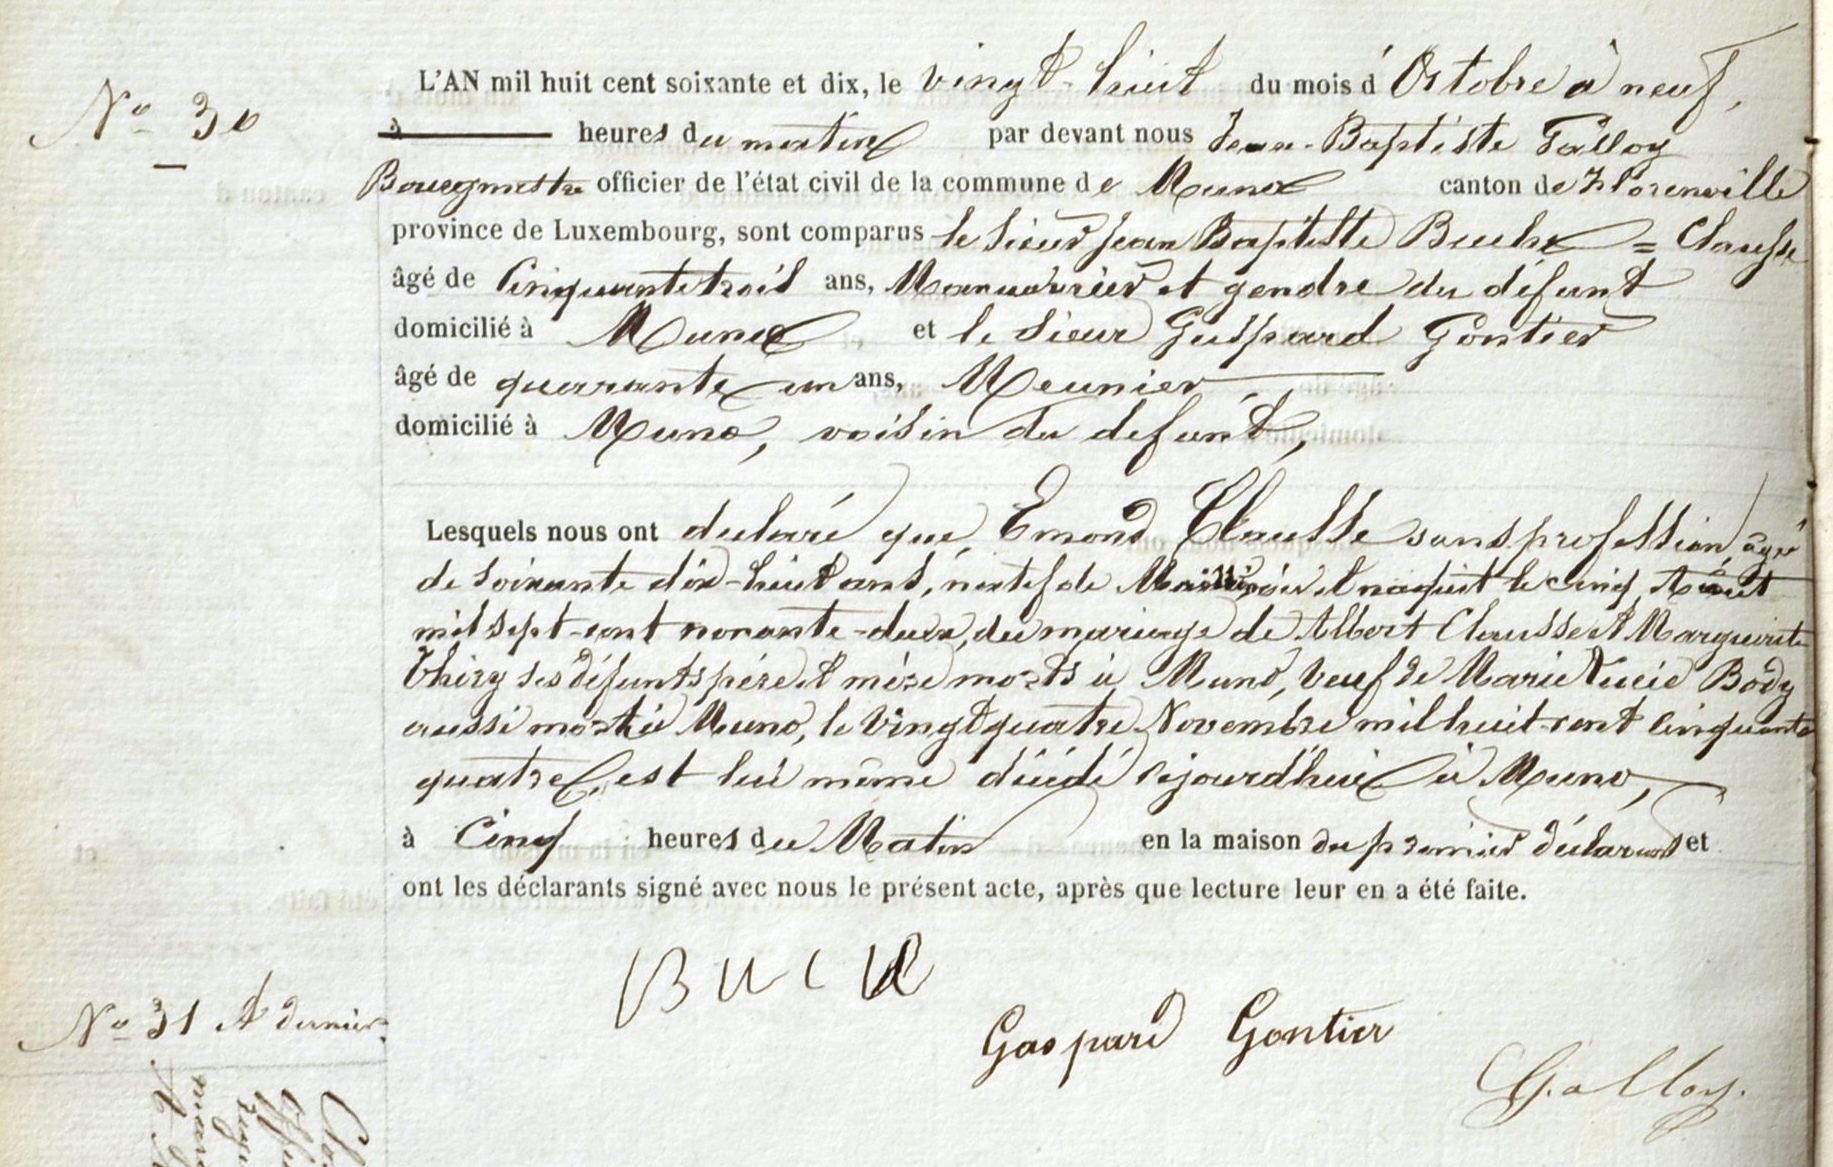 N° 30
L'AN mil huit cent soixante et dix, le vingt-huit du mois d'Octobre à neuf,
à heures du matin par devant nous Jean-Baptiste Galloy
Bourgmestre officier de l'état civil de la commune de Muno canton de Florenville
province de Luxembourg, sont comparus le sieur Jean Baptiste Buche = Clausse
âgé de Cinquante trois ans, Manouvrier et gendre du défunt
domicilié à Muno et le sieur Guspard Gontier
âgé de quarante un ans, Meunier
domicilié à Muno, voisin du defunt,
Lesquels nous ont declaré que Emond Clausse sans profession, âgé
de soixante dix-huit ans, natif de où il naquit le cinq Août
mil sept-cent nonante-deux, du mariage de Albert Clausse et Marguerite
Thiry ses défunts père et mère morts à Muno, Veuf de Marie Lucie Body
aussi morte à Muno, le Vingt quatre Novembre mil huit-cent cinquante
quatre, est lui même décédé cejourd'hui à Muno,
à Cinq heures du Matin en la maison du premier déclarant et
ont les déclarants signé avec nous le présent acte, après que lecture leur en a été faite.
Gaspard Gontier
Galloy.
N° 31 et dernier.